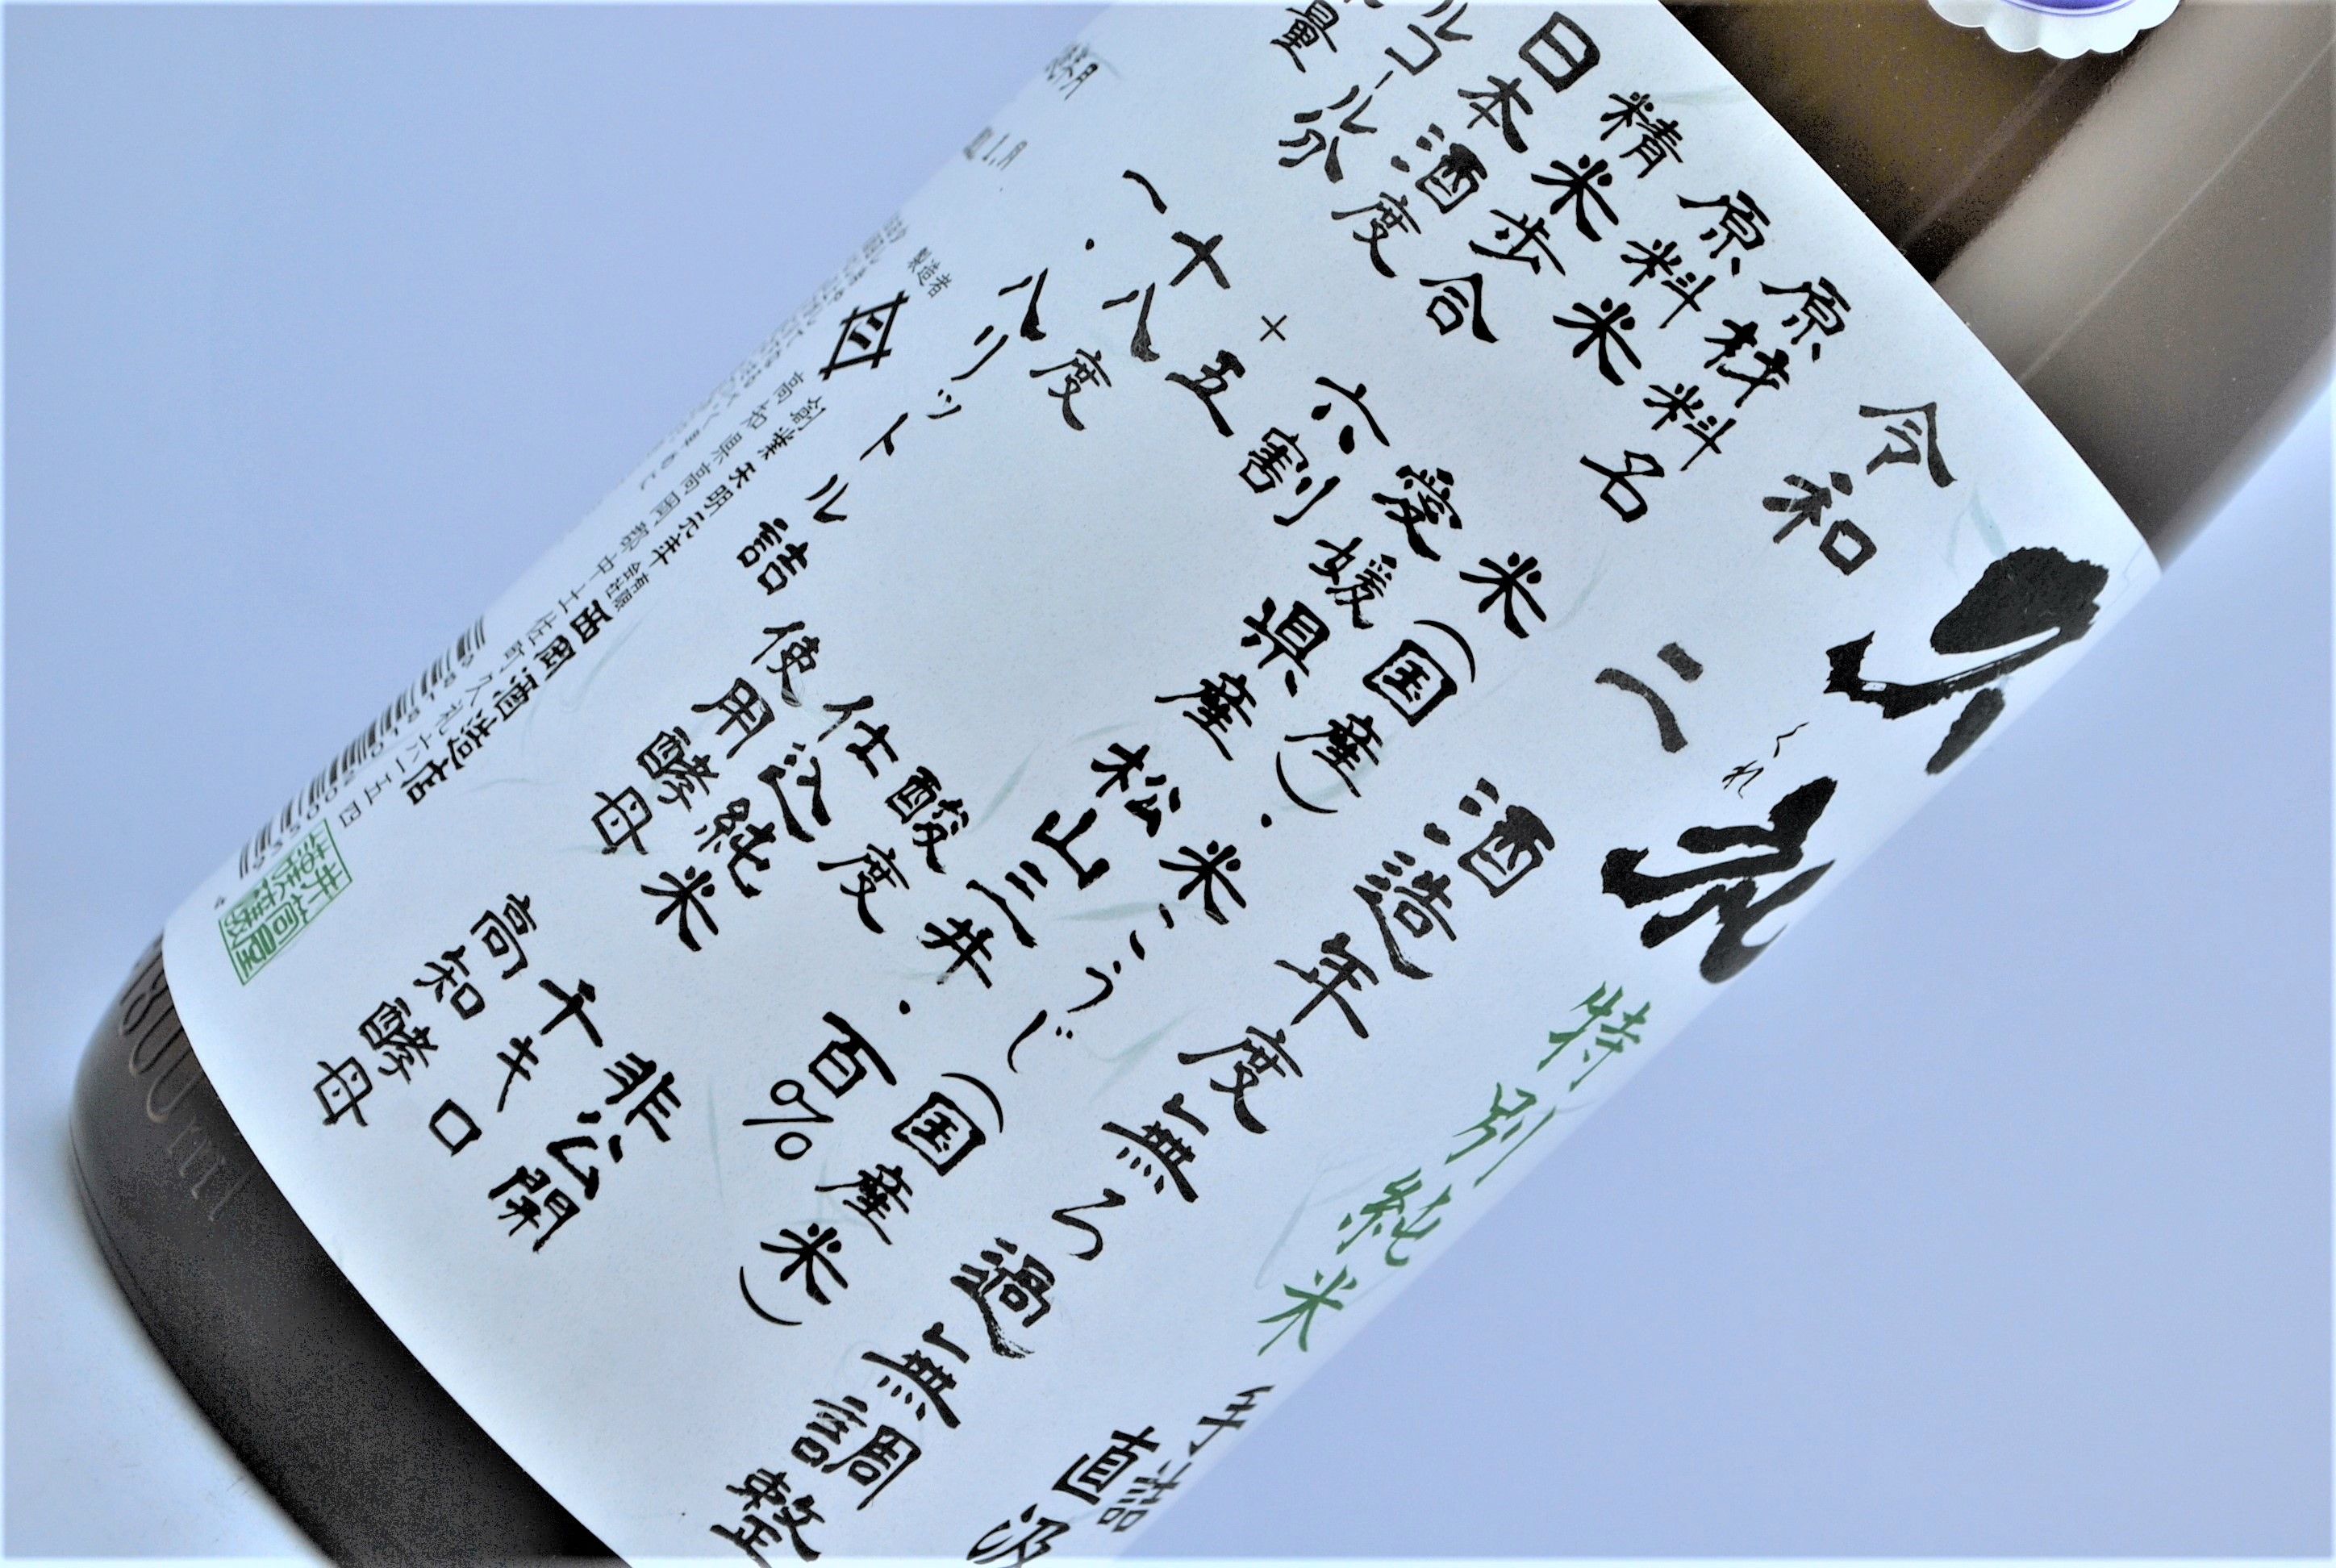 久礼
くれ
特別純米
手詰
直汲
令和二酒造年度無ろ過無調整
原材料名 米(国産)・米こうじ(国産米)
原料米 愛媛県産 松山三井・百%
精米歩合 六割 酸度 非公開
日本酒度 +五 仕込純米 千キロ
ルコール分 十八度 使用酵母 高知酵母
量 一・八リットル詰
製造者 創業天明元年 有限会社 西岡酒造店
高知県高岡郡中土佐町久礼六一五四
1800ml